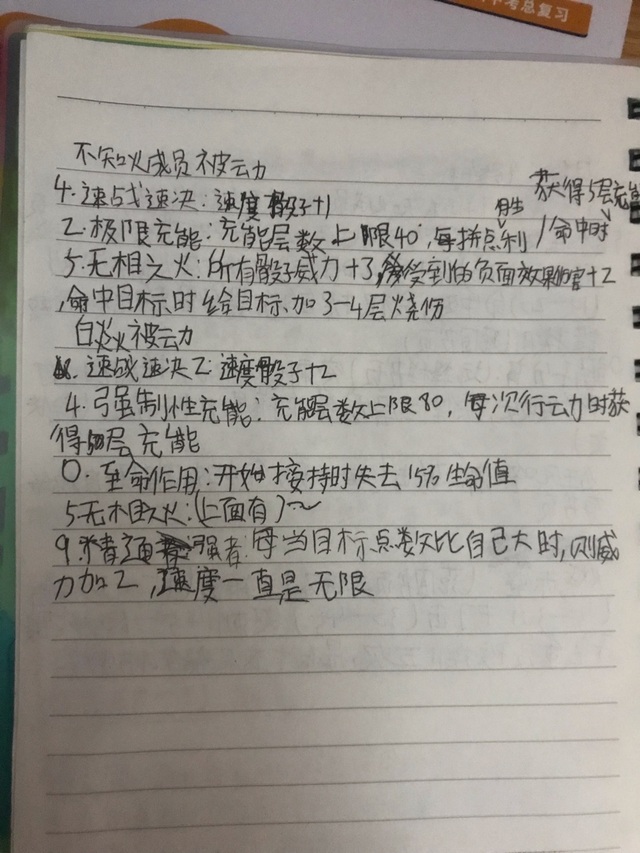 中考总复习
不知火成员被动
获得5层充能
4.速战速决:速度骰子+1
胜
2.极限充能:充能层数上限40,每拼点利/命中时
5.无相之火:所有骰子威力+3,受到的负面效果+2
,命中目标时给目标加3-4层烧伤
白炎被动
速战速决2:速度骰子+2
4.强制性充能:充能层数上限80,每次行动时获
得层充能
0.至命作用:开始接待时失去15%生命值
5无相之火:(上面有)~
9.强者:每当目标点数比自己大时,则威
力加2,速度一直是无限